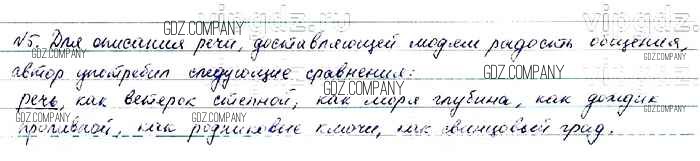 №5. Для описания речи, доставляющей людям радость общения,
автор употребил следующие сравнения:
речь, как ветерок степной, как моря глубина, как дождик
проливной, как родниковые ключи, как свинцовый град.
GDZ.COMPANY
GDZ.COMPANY
GDZ.COMPANY
GDZ.COMPANY
GDZ.COMPANY
GDZ.COMPANY
GDZ.COMPANY
GDZ.COMPANY